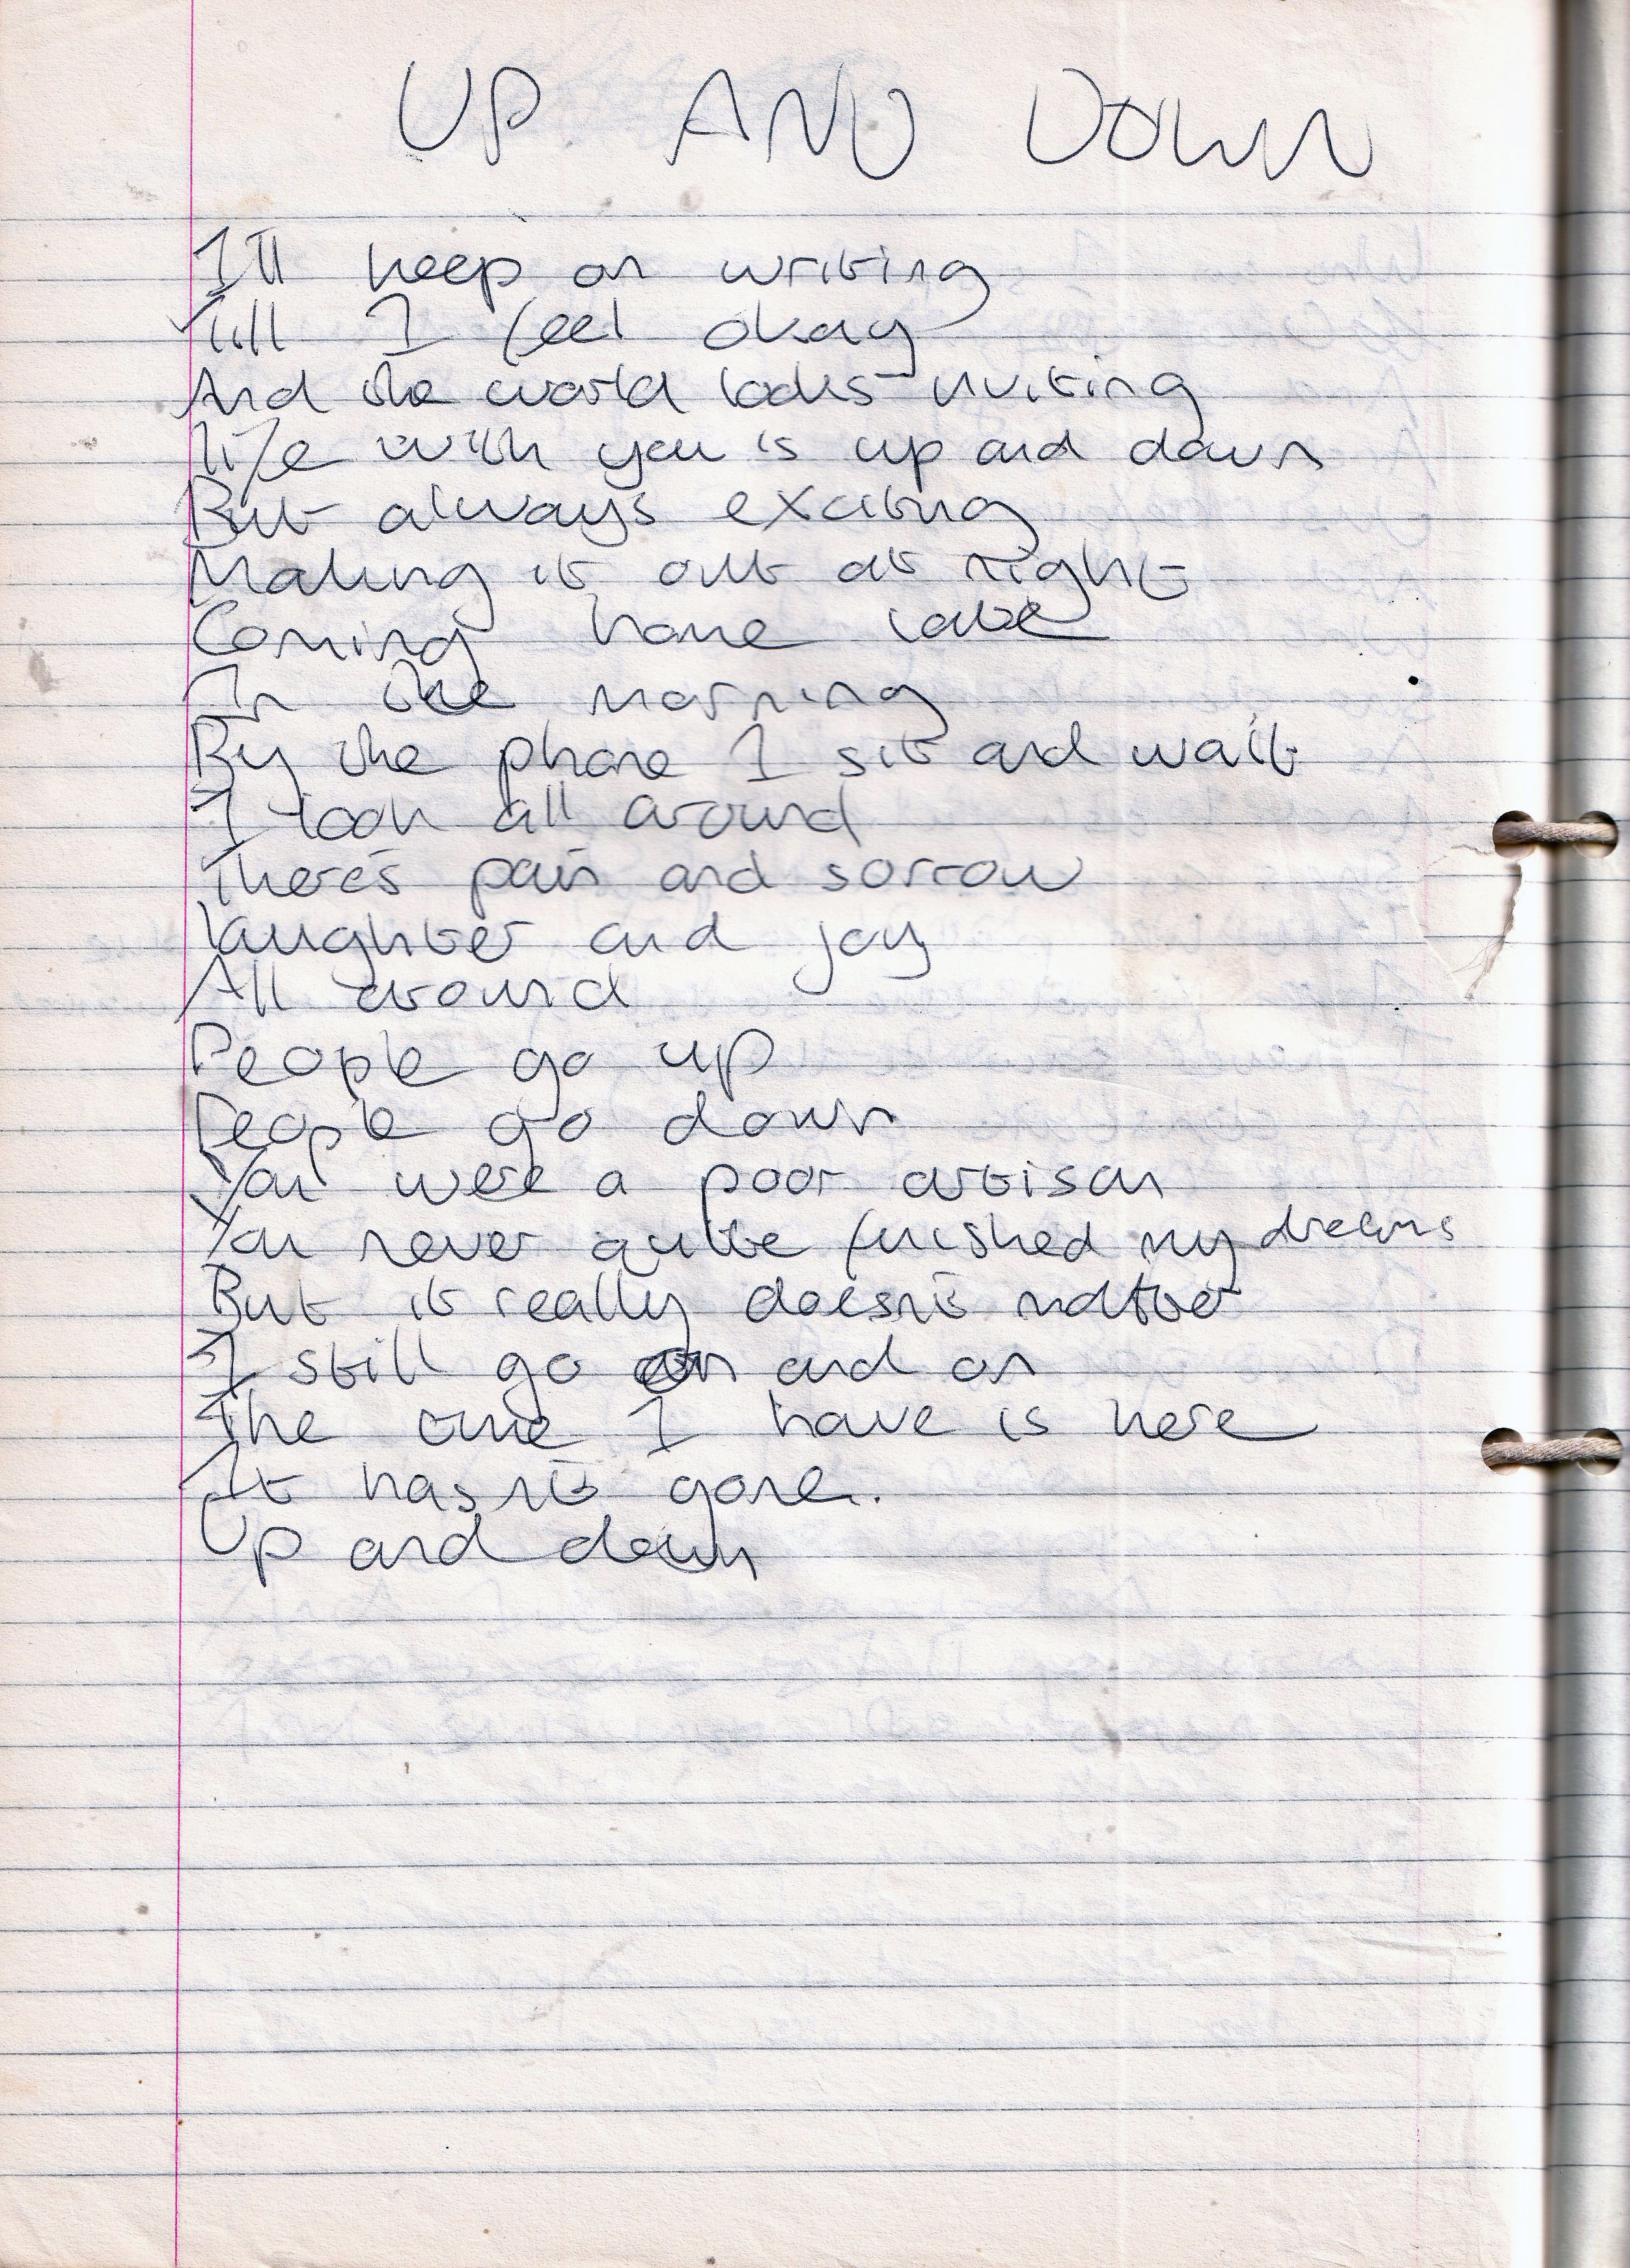 UP AND DOWN
I'll keep on writing
Till I feel okay
And the world looks inviting
Life with you is up and down
But always exciting
Making it out at night
Coming home late
In the morning
By the phone I sit and wait
I look all around
There's pain and sorrow
Laughter and joy
All around
People go up
People go down
You were a poor artisan
You never quite finished my dreams
But it really doesn't matter
I still go on and on
The one I have is here
It hasn't gone.
Up and down